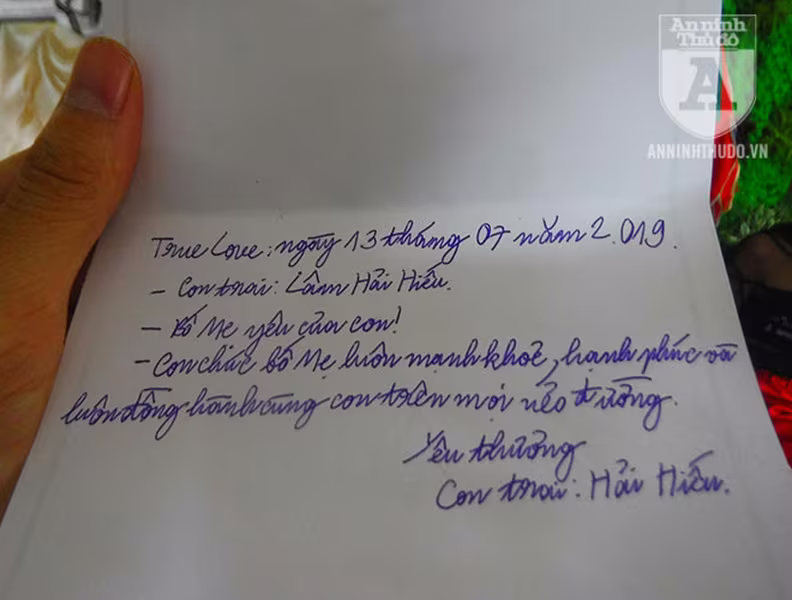 An ninh
Thủ đô
A
ANNINHTHUDO.VN
True Love; ngày 13 tháng 07 năm 2.019.
- Con trai: Lâm Hải Hiếu.
- Bố Mẹ yêu của con!
- Con chúc bố Mẹ luôn mạnh khoẻ, hạnh phúc và
luôn đồng hành cùng con trên mọi nẻo đường.
Yêu thương
Con trai: Hải Hiếu.